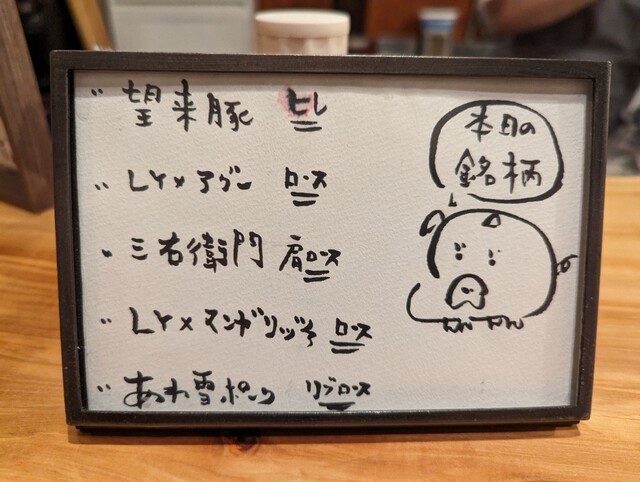 望来豚 ヒレ
LY×アグー ロース
三右衛門 肩ロース
LY×マンガリッツァ ロース
あわ雪ポーク リブロース
本日の
銘柄